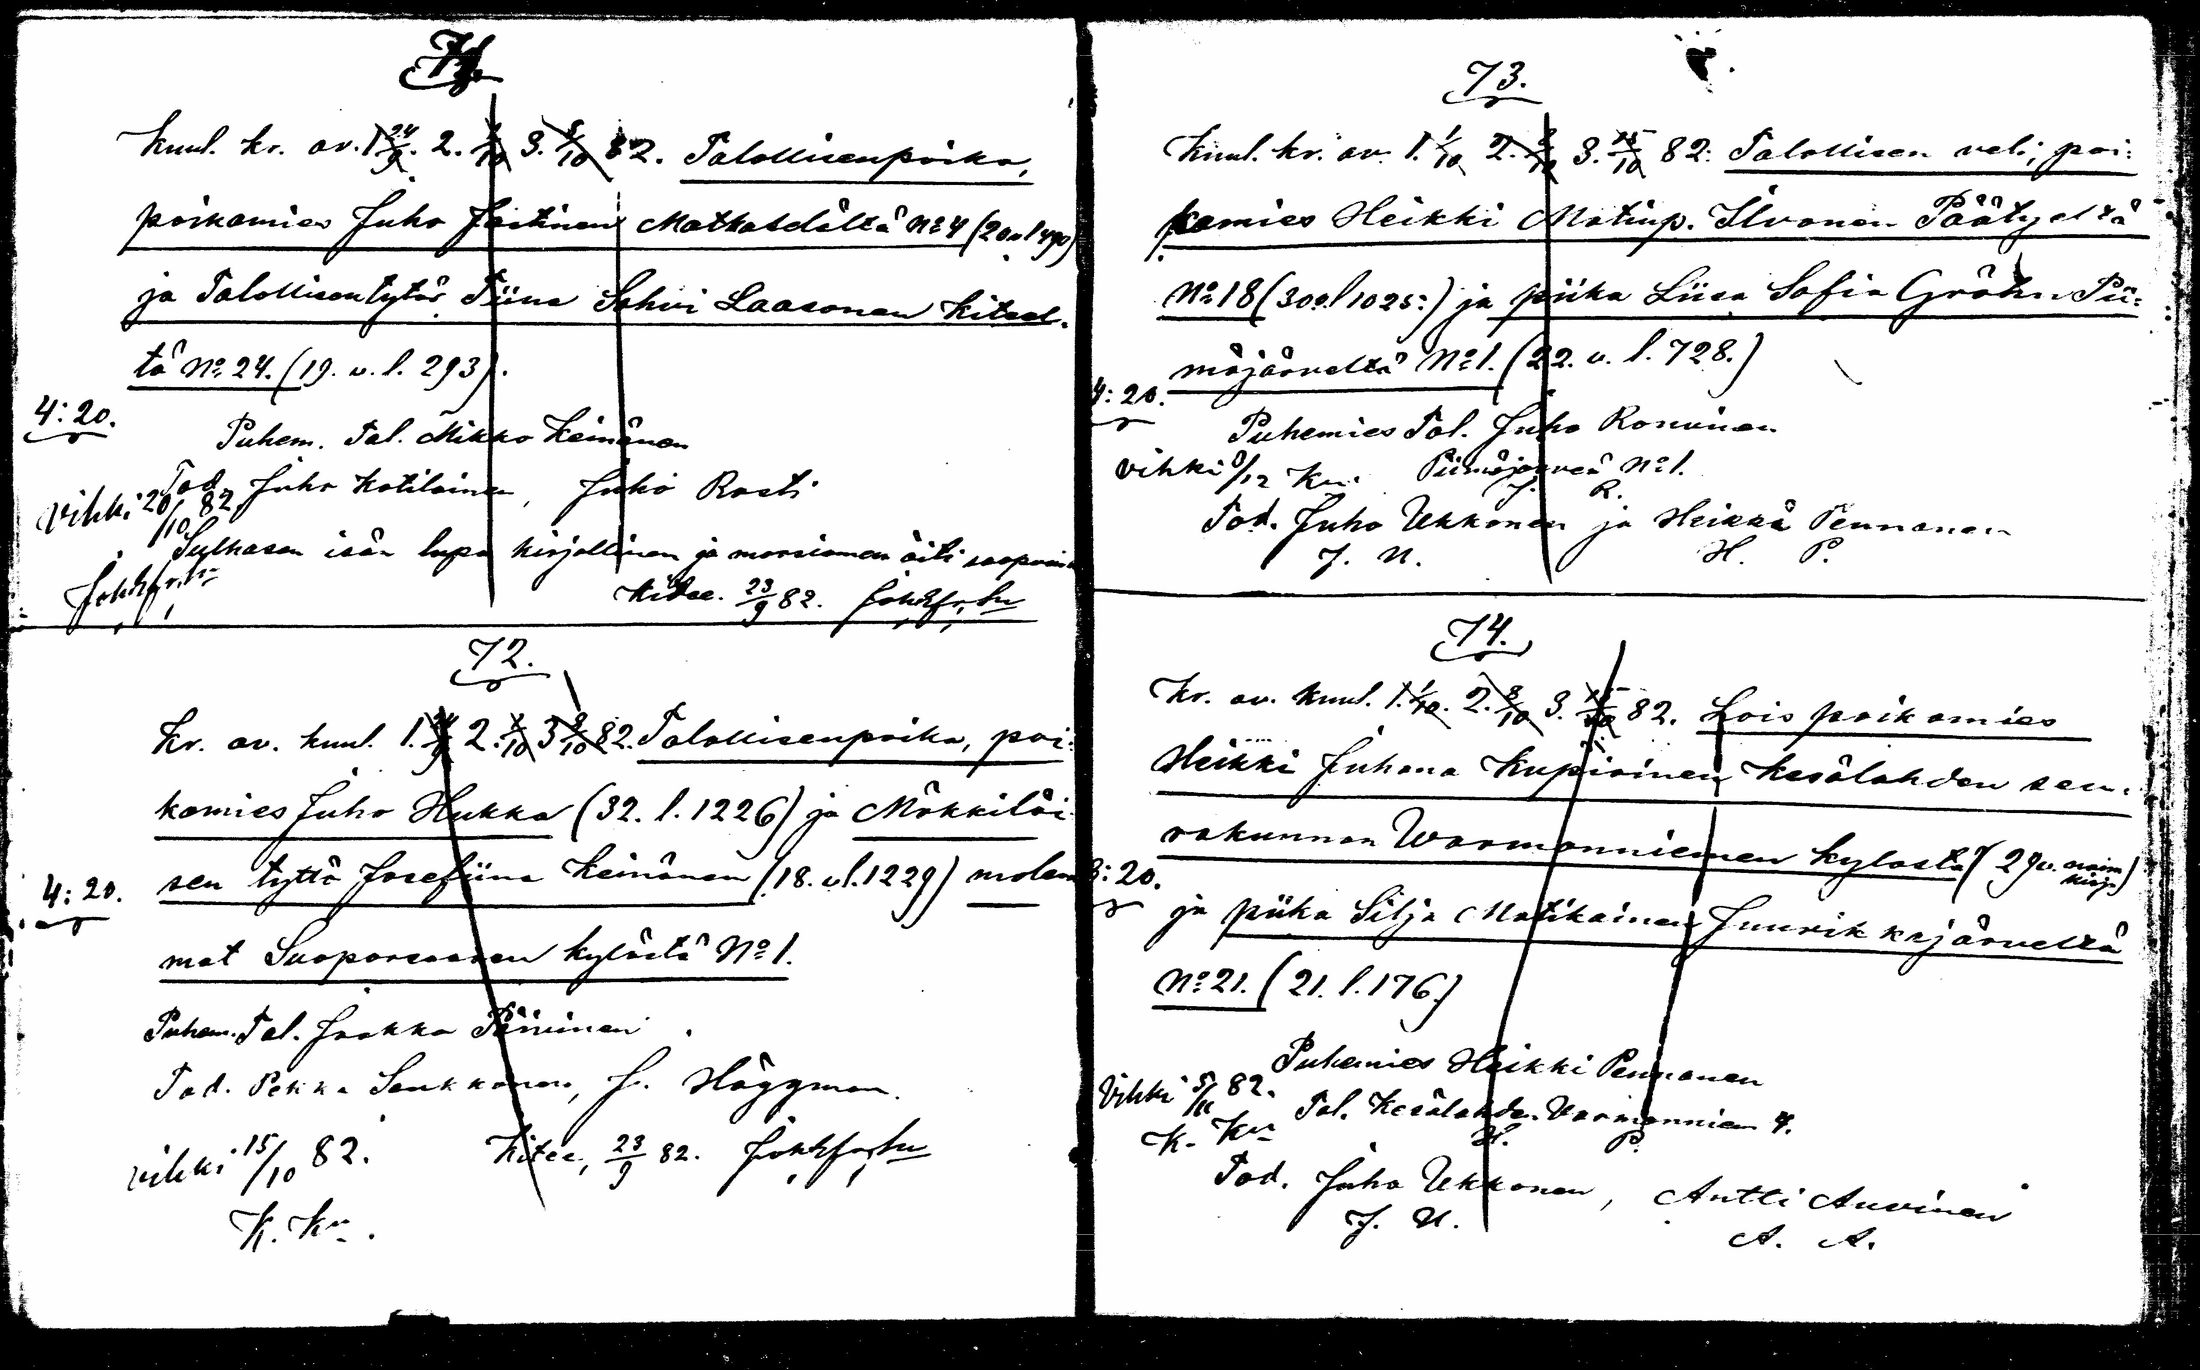 71.
Kuul. kr. av. 1. 24/9. 2. 1/10 3. 8/10 82. Talollisenpoika,
poikamies Juho Matkaselältä No 4 (20 v. l 490)
ja Talollisentytär Tiina Sohvi Laasonen Kiteel-
tä No 24. (19. v. l. 293).
4:20.
Puhem. Tal. Mikko Keinänen
Tod. Juho Kotilainen, Juho Rasti
Vihki 20/10 82
Sulhasen isän lupa kirjallinen ja morsiamen äiti
Kitee. 23/9 82.
72.
Kr. av. kuul. 1. 24/9 2. 1/10 3 8/10 82. Talollisenpoika, poi-
kamies Juho Hukka (32. l. 1226) ja Mökkiläi-
sen tyttö Josefiina Keinänen (18. v. l. 1229) molem-
4:20.
mat Suoporsaaren kylästä No 1.
Puhem. Tal. Jaakko
Tod. Pekka Senkkanen, J. Häggman.
vihki 15/10 82.
Kitee, 23/9 82.
K. Kn.
73.
Kuul. kr. av. 1. 1/10 2. 8/10 3. 15/10 82. Talollisen veli, poi-
kamies Heikki Matinp. Ilvonen Päätyeltä
No 18 (30 v. l 1025.) ja piika Liisa Sofia Gröhn Pii-
mäjärveltä No 1. (22. v. l. 728.)
4:20.
Puhemies Tal. Juho Ronninen
vihki 8/12 Kn. Piimäjärveä No 1.
J. R.
Tod. Juho Ukkonen ja Heikki Pennanen
J. U. H. P.
74.
Kr. av. kuul. 1. 1/10. 2. 8/10 3. 15/10 82. Lois poikamies
Heikki Juhana Kupiainen Kesälahden seu-
rakunnan Warmonniemen kylästä (29 v.
3:20.
ja piika Silja Matikainen Juurikkajärveltä
No 21. (21. l. 176.)
Puhemies Heikki Pennanen
Vihki 5/11 82. Tal. Kesälahden Varmonniem 4.
K. Kn H. P.
Tod. Juho Ukkonen, Antti Auvinen
J. U. A. A.